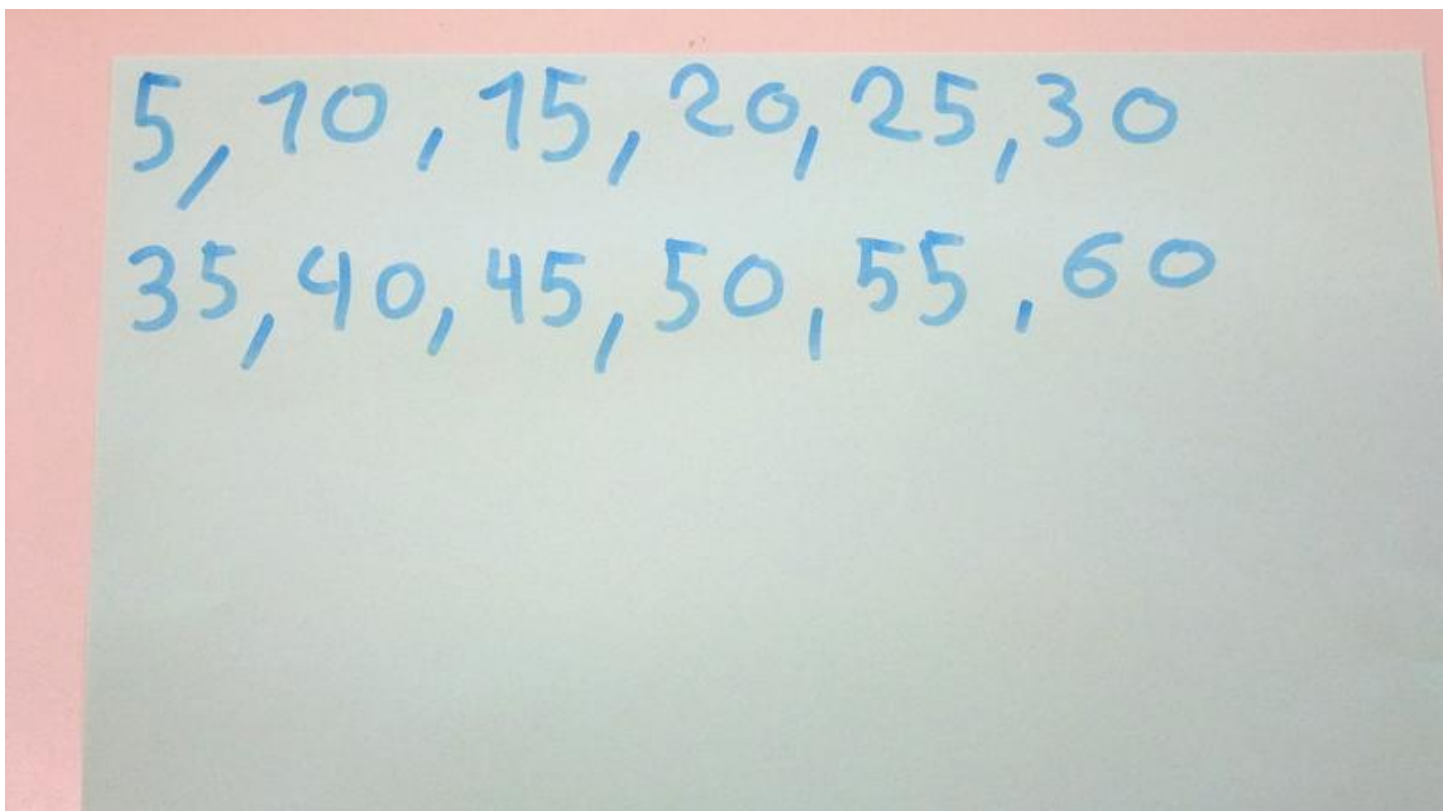 5, 10, 15, 20, 25, 30
35, 40, 45, 50, 55, 60